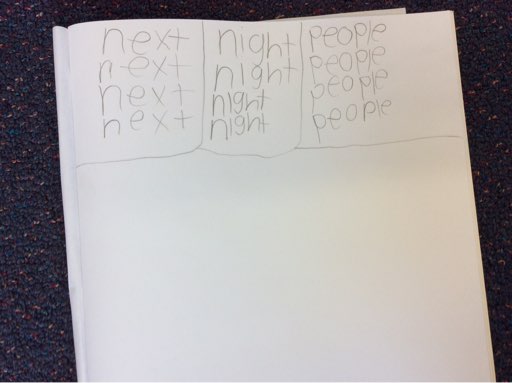 next night people
next night people
next night people
next night people